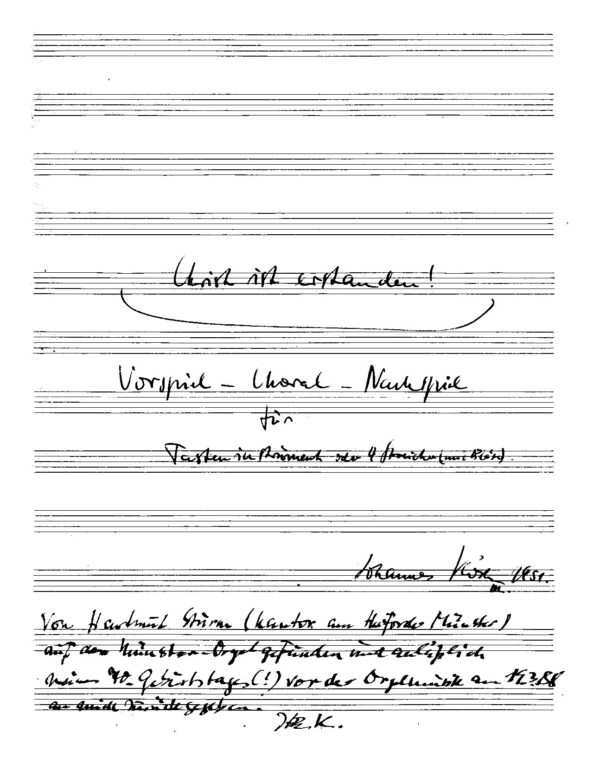 Christ ist erstanden!
Vorspiel – Choral – Nachspiel
für
Tasteninstrument oder 4 Streicher (mit
Johannes 1951.
III.
Von Hartmut Sturm (Kantor am Herforder Münster)
auf der Münster-Orgel gefunden und anläßlich
meines 70. Geburtstages (!) vor der Orgelmusik am
an mich zurückgegeben.
K.